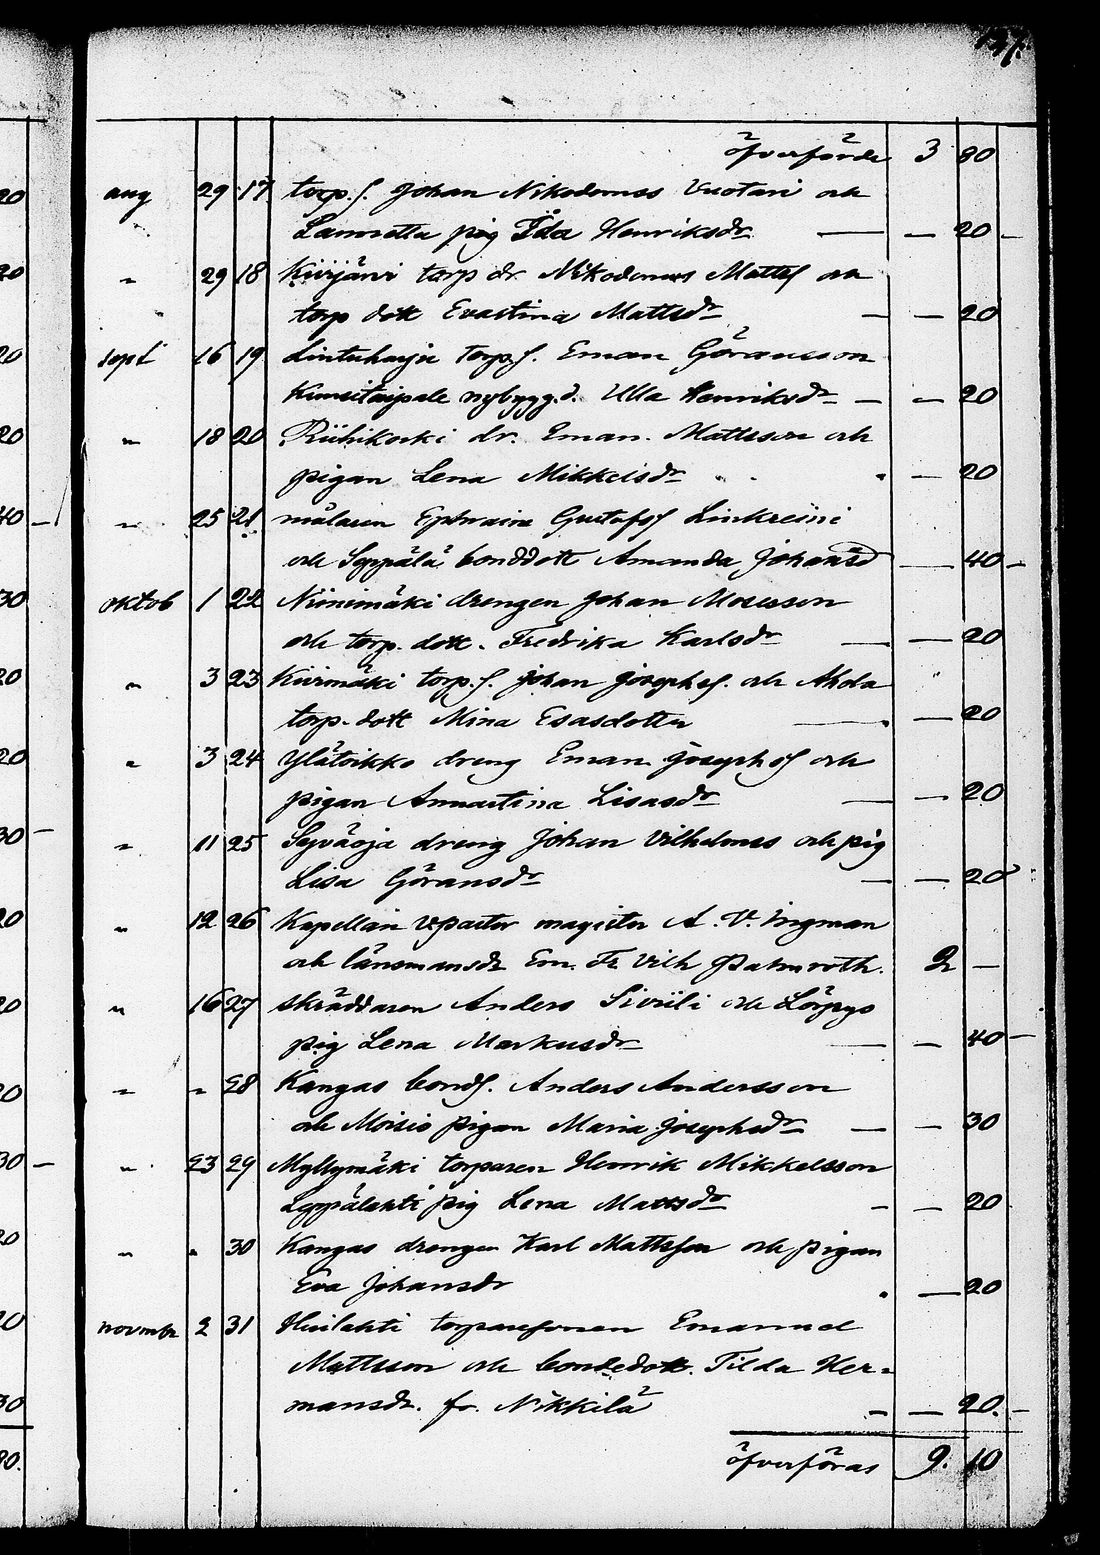 137.
öfverförde 3 80
aug 29 17 torp.s. Johan Nikodemus Vuotari och
Lammetta pig Ida Henriksdr — — 20 —
" 29 18 Kivijärvi torp dr. Nikodemus Mattss och
torp dott Evastina Mattsdr — — 20
sept 16 19 Lintuharju torp.s. Eman Göransson
nybygg.d. Ulla Henriksdr — — — 20
" 18 20 Riihikoski dr. Eman. Mattsson och
pigan Lena Mikkelsdr — 20
" 25 21 målaren Ephraim Gustafss Linkreini
och Seppälä bonddott Amanda Johansd — 40 —
oktob 1 22 Niinimäki drengen Johan Mosesson
och torp. dott. Fredrika Karlsdr — — 20
" 3 23 Kivimäki torp.s. Johan Josephss. och Ahola
torp. dott Mina Esasdotter — — 20
" 3 24 Ylätoikko dreng Eman Josephss och
pigan Annastina Lisasdr — — 20
" 11 25 Syväoja dreng Johan Vilhelmss och pig
Lisa Göransdr — — 20
" 12 26 Kapellan v pastor magister A. V. Ingman
och länsmansdr Em. Fr Vilh Palmroth. 2 —
" 16 27 skräddaren Anders Siviili och Löppys
pig Lena Markusdr — — 40 —
" " 28 Kangas bonds. Anders Andersson
och Moisio pigan Maria Josephsdr — — 30
" 23 29 Myllymäki torparen Henrik Mikkelsson
Leppälahti pig Lena Mattsdr — — 20
" " 30 Kangas drengen Karl Mattsson och pigan
Eva Johansdr — 20
novmbr 2 31 torparesonen Emanuel
Mattsson och bondedott. Tilda Her=
mansdr. fr. Nikkilä — — 20. —
öfverföras 9. 10